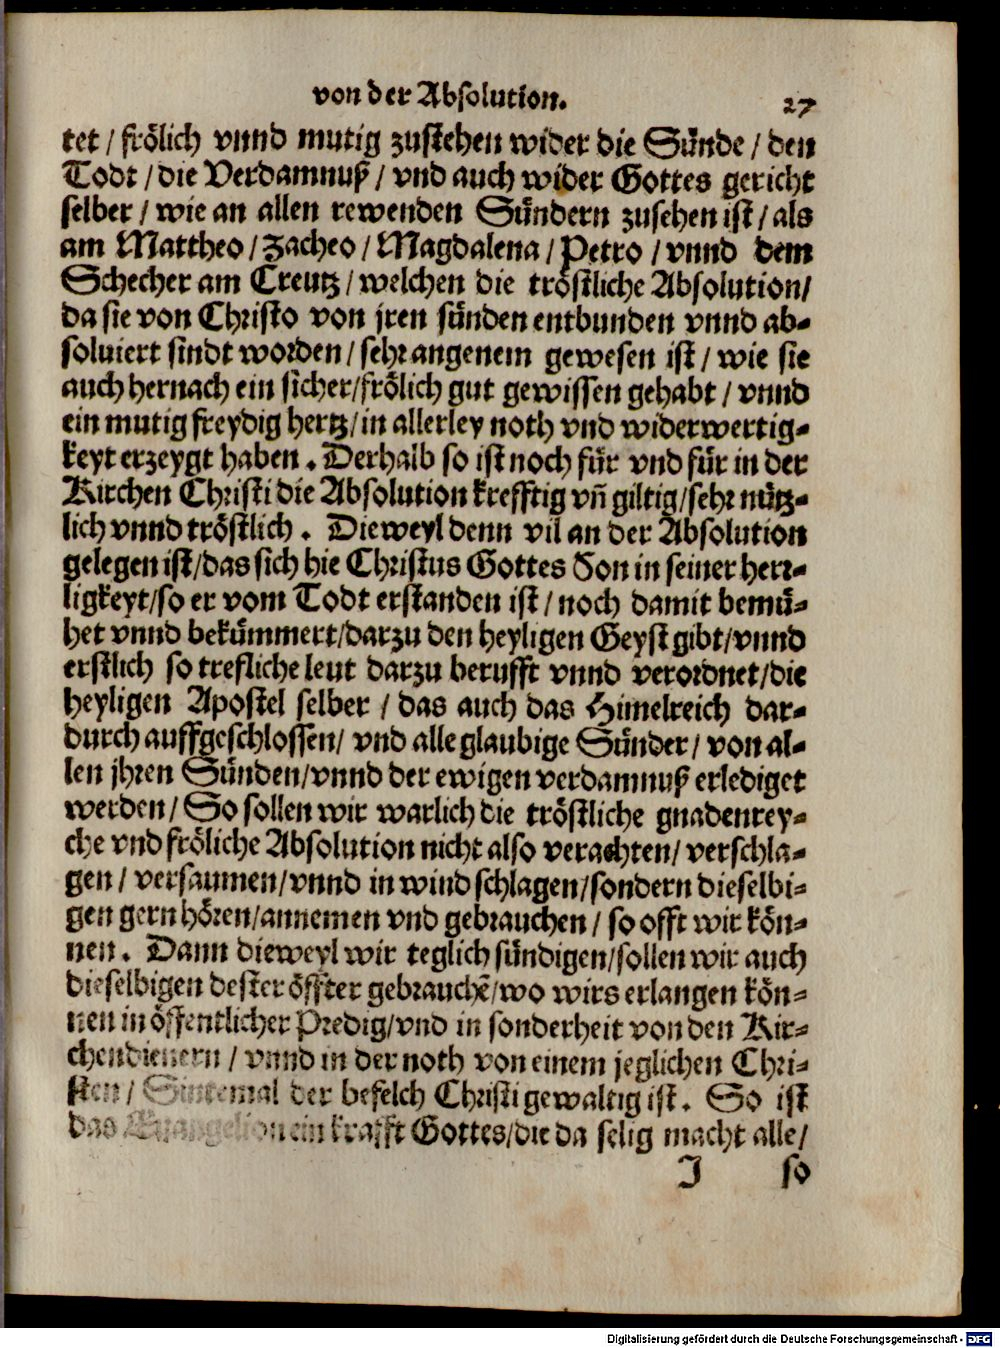 von der Absolution. 27
tet / frölich vnnd mutig zustehen wider die Sünde / den
Todt / die Verdamnuß / vnd auch wider Gottes gericht
selber / wie an allen rewenden Sündern zusehen ist / als
am Mattheo / Zacheo / Magdalena / Petro / vnnd dem
Schecher am Creutz / welchen die tröstliche Absolution /
da sie von Christo von jren sünden entbunden vnnd ab-
soluiert sindt worden / sehr angenem gewesen ist / wie sie
auch hernach ein sicher / frölich gut gewissen gehabt / vnnd
ein mutig freydig hertz / in allerley noth vnd widerwertig-
keyt erzeygt haben. Derhalb so ist noch für vnd für in der
Kirchen Christi die Absolution krefftig vñ giltig / sehr nütz-
lich vnnd tröstlich. Dieweyl denn vil an der Absolution
gelegen ist / das sich hie Christus Gottes Son in seiner herr-
ligkeyt / so er vom Todt erstanden ist / noch damit bemü-
het vnnd bekümmert / darzu den heyligen Geyst gibt / vnnd
erstlich so trefliche leut darzu berufft vnnd verordnet / die
heyligen Apostel selber / das auch das Himelreich dar-
durch auffgeschlossen / vnd alle glaubige Sünder / von al-
len jhren Sünden / vnnd der ewigen verdamnuß erlediget
werden / So sollen wir warlich die tröstliche gnadenrey-
che vnd fröliche Absolution nicht also verachten / verschla-
gen / versaumen / vnnd in wind schlagen / sondern dieselbi-
gen gern hören / annemen vnd gebrauchen / so offt wir kön-
nen. Dann dieweyl wir teglich sündigen / sollen wir auch
dieselbigen dester öffter gebrauchẽ / wo wirs erlangen kön-
nen in öffentlicher Predig / vnd in sonderheit von den Kir-
chendienern / vnnd in der noth von einem jeglichen Chri-
sten / Sintemal der befelch Christi gewaltig ist. So ist
das Euangelion ein krafft Gottes / die da selig macht alle /
J so
Digitalisierung gefördert durch die Deutsche Forschungsgemeinschaft - DFG